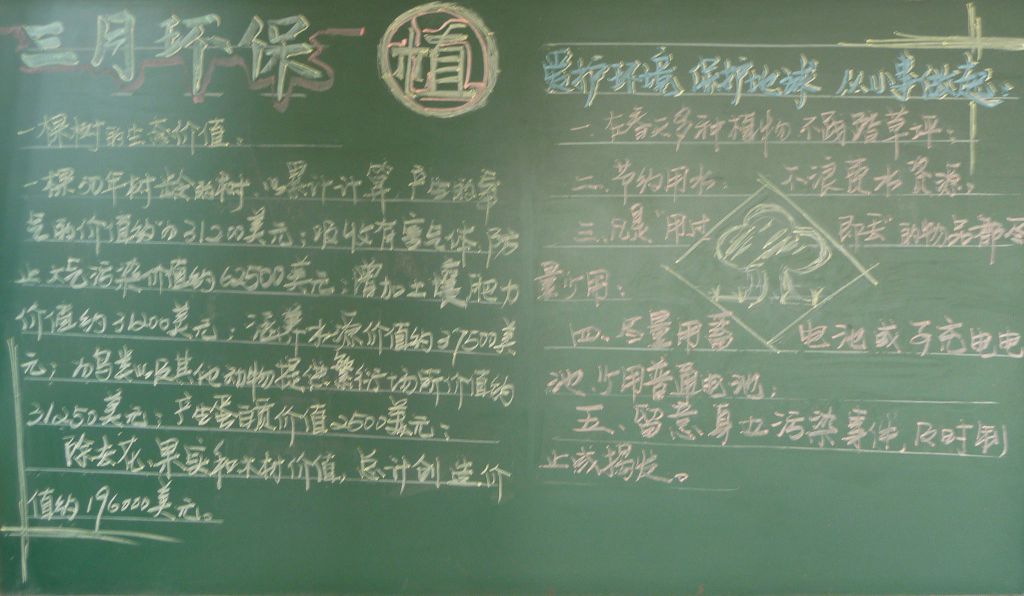 三月环保
植
一棵树的生态价值：
一棵50年树龄的树，以累计计算，产生的氧
气的价值约31200美元；吸收有害气体，防
止大气污染价值约62500美元；增加土壤肥力
价值约31200美元；涵养水源价值约37500美
元；为鸟类以及其他动物提供繁衍场所价值约
31250美元；产生蛋白质价值2500美元；
除去花、果实和木材价值，总计创造价
值约196000美元。
爱护环境 保护地球 从小事做起：
一、在春天多种植物 不踏踏草坪；
二、节约用水 不浪费水资源；
三、凡是"用过 即丢"的物品都尽
量少用；
四、尽量用蓄 电池或可充电电
池少用普通电池；
五、留意身边污染事件 及时制
止或揭发。